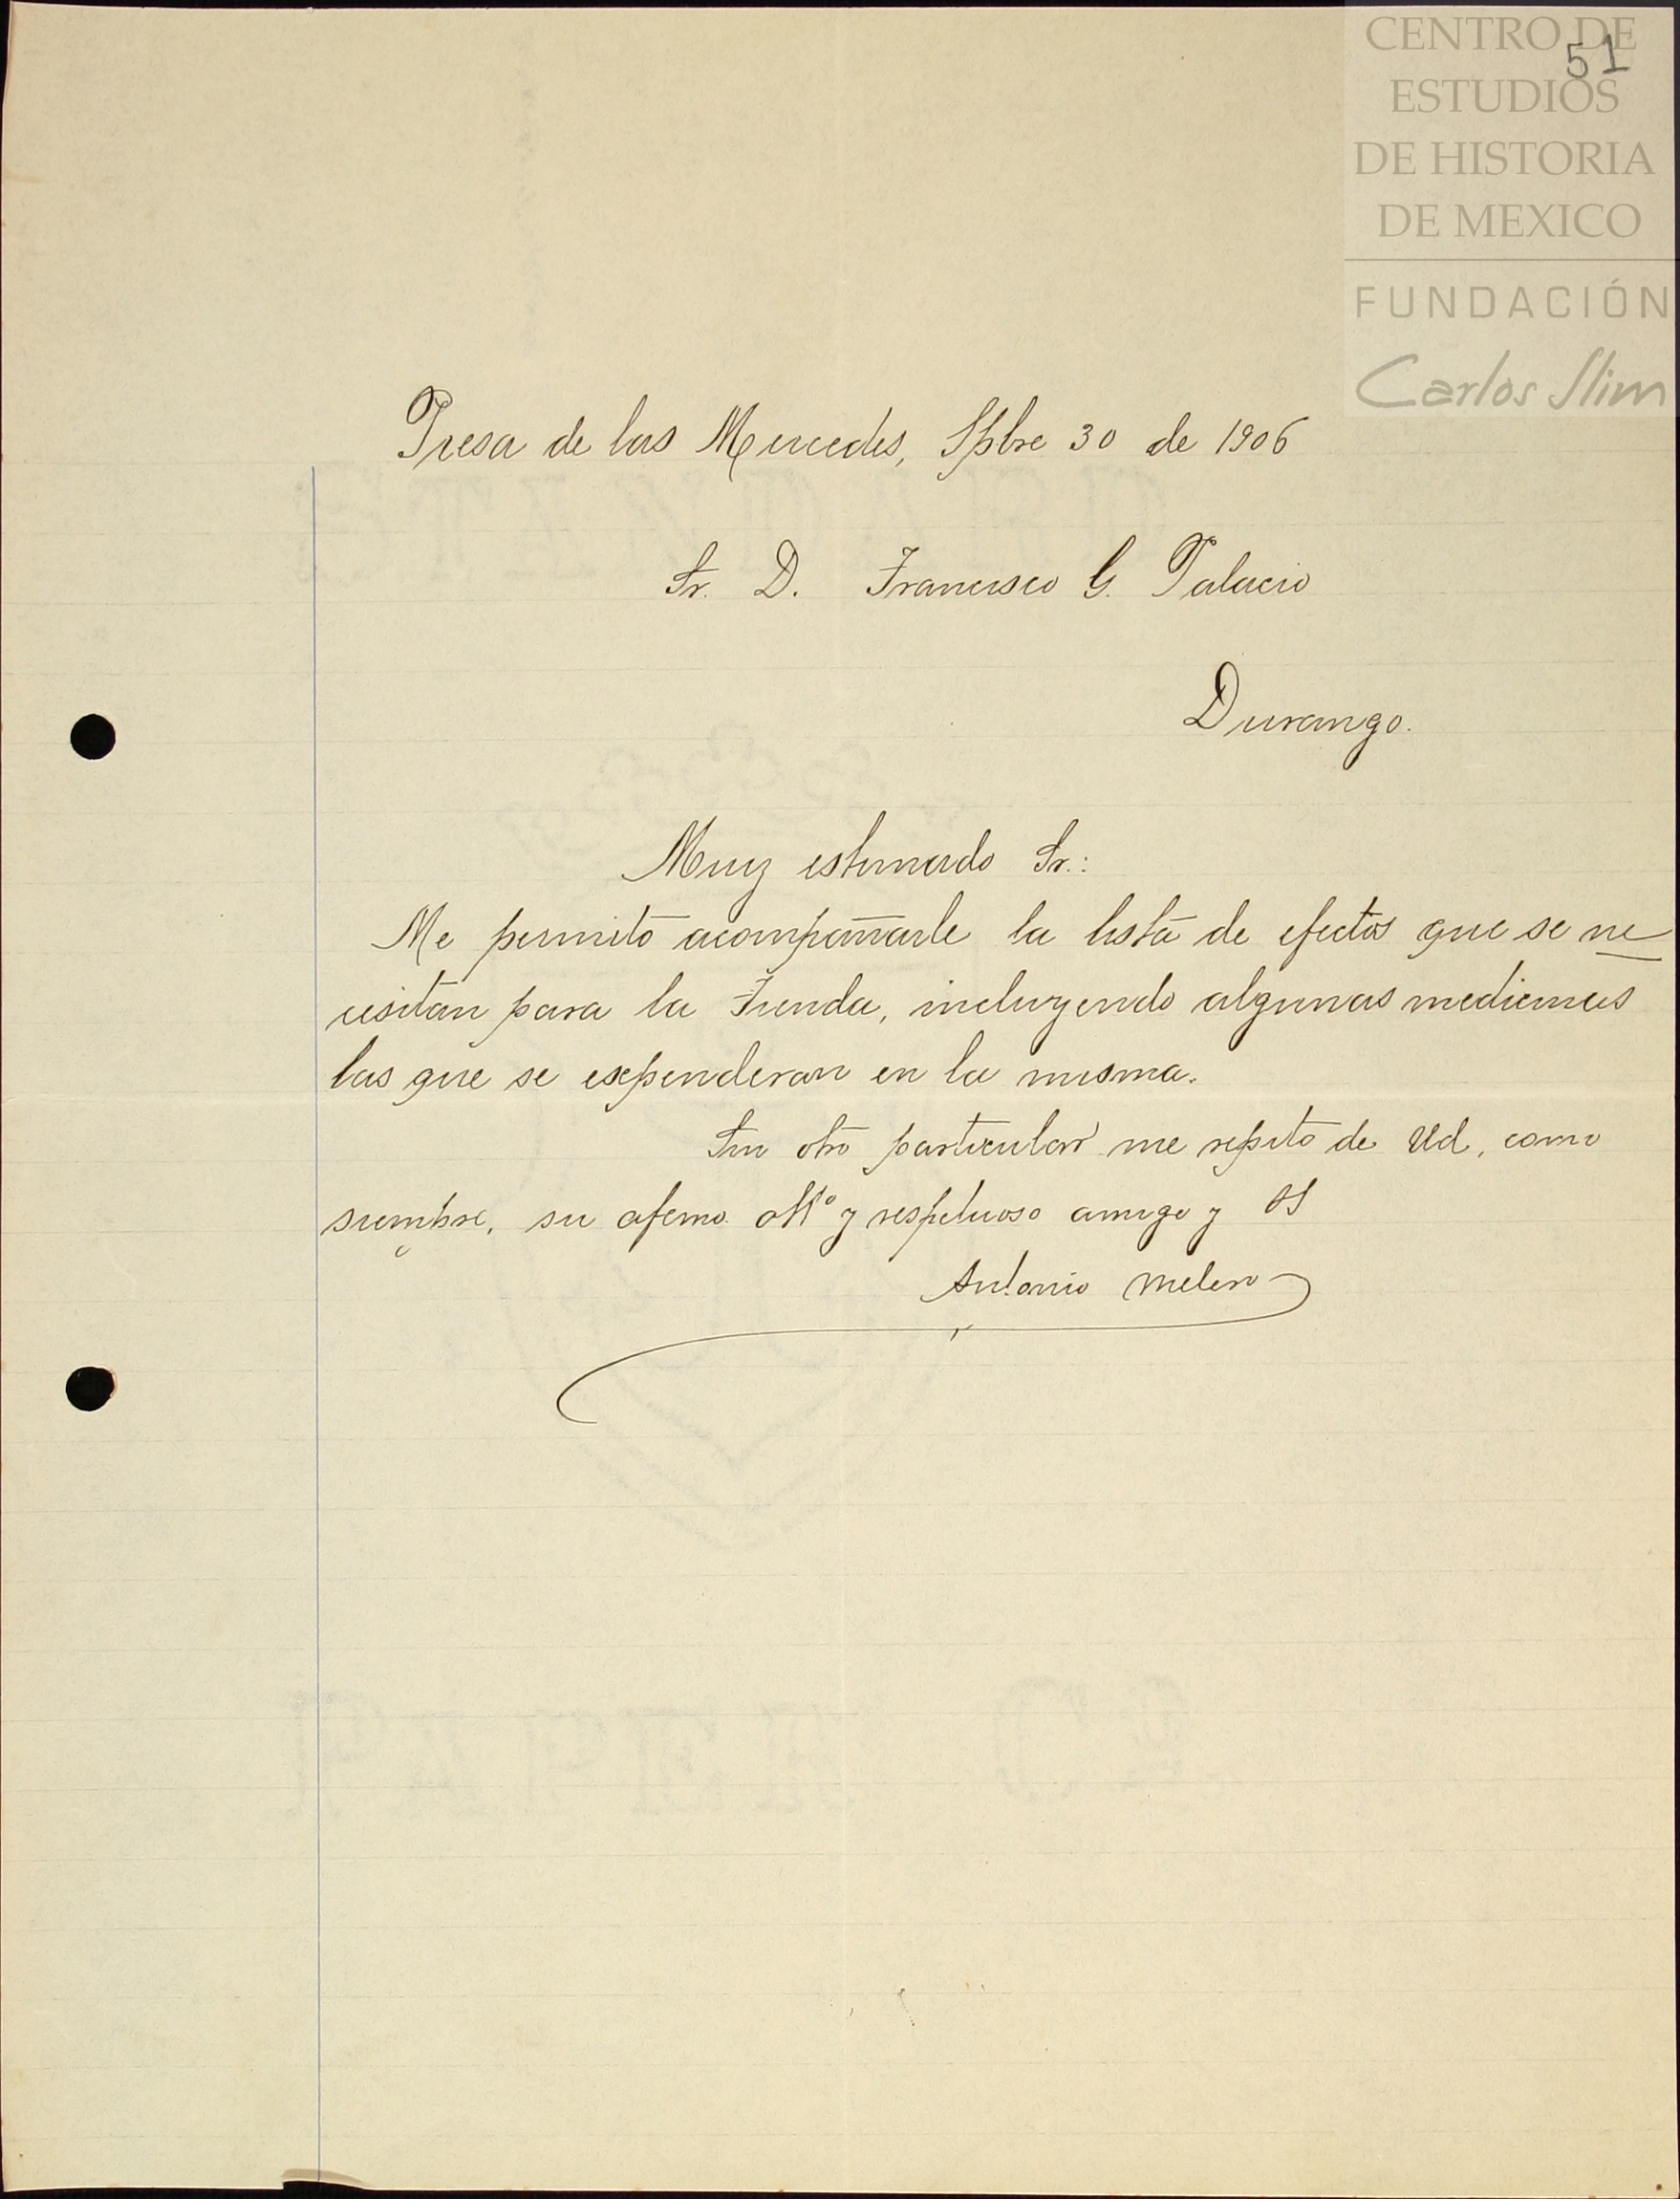 CENTRO DE
ESTUDIOS
DE HISTORIA
DE MEXICO
FUNDACIÓN
Carlos Slim
51
Presa de las Mercedes, Spbre 30 de 1906
Sr. D. Francisco G. Palacio
Durango.
Muy estimado Sr.:
Me permito acompañarle la lista de efectos que se ne
cesitan para la Tienda, incluyendo algunas medicinas
las que se expenderan en la misma.
Sin otro particular me repito de Ud, como
siempre, su afemo. att° y respetuoso amigo y SS
Antonio Melero